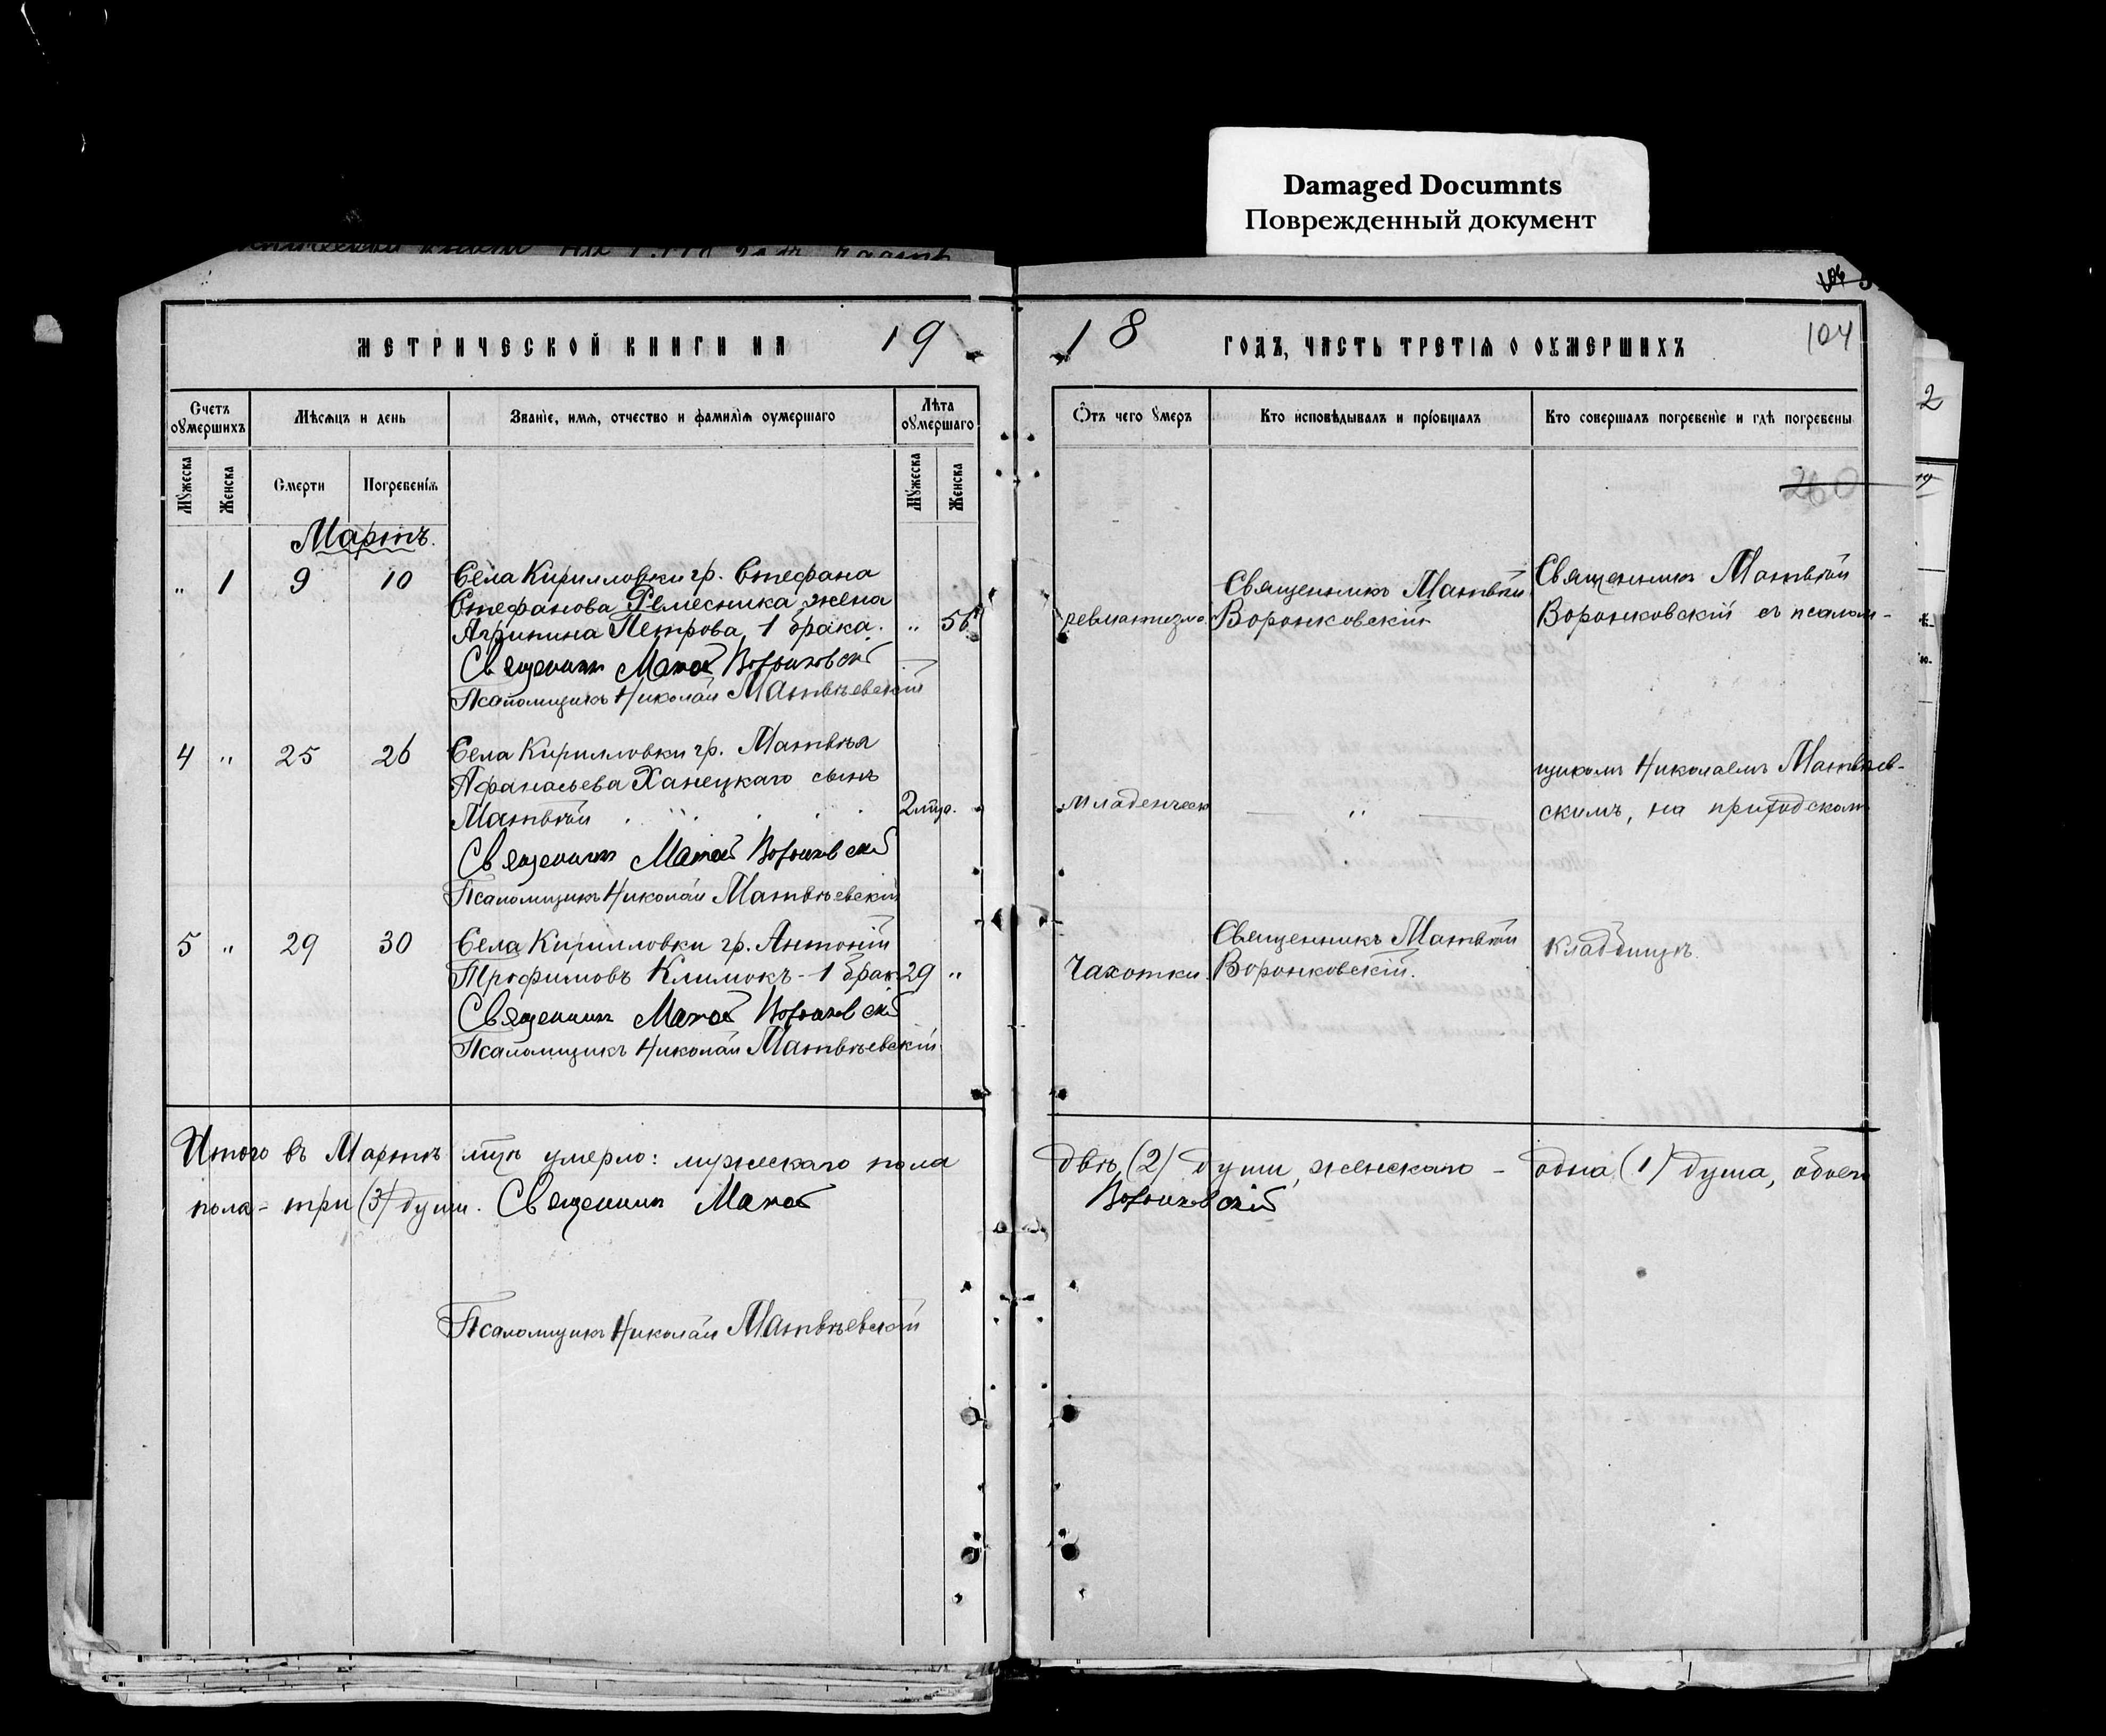 Damaged Documnts
Поврежденный документ
МЕТРИЧЕСКОЙ КНИГИ НА 19
18 ГОДЪ, ЧАСТЬ ТРЕТІѦ О ОУМЕРШИХЪ
104
2
Счетъ оумершихъ
Мѣсѧцъ и день
Званіе, имѧ, отчество и фамиліѧ оумершаго
Лѣта оумершаго
Мужеска
Женска
Смерти
Погребеніѧ
Мужеска
Женска
Отъ чего умеръ
Кто исповѣдывалъ и пріобщалъ
Кто совершалъ погребеніе и гдѣ погребены
260
Мартъ.
„ 1 9 10 Села Кирилловки гр. Стефана
Стефанова Ремесника жена
Агрипина Петрова, 1 брака. „ 56.
Священникъ Матвѣй Воронковскій
Псаломщикъ Николай Матвѣевскій
ревматизма
Священникъ Матвѣй
Воронковскій
Священникъ Матвѣй
Воронковскій съ псалом-
4 „ 25 26 Села Кирилловки гр. Матвѣя
Афанасьева Ханецкаго сынъ
Матвѣй 2 мѣс.
Священникъ Матвѣй Воронковскій
Псаломщикъ Николай Матвѣевскій
младенческ
„
щикомъ Николаемъ Матвѣев-
скимъ, на приходскомъ
5 „ 29 30 Села Кирилловки гр. Антоній
Трофимовъ Климокъ - 1 брак 29 „
Священникъ Матвѣй Воронковскій
Псаломщикъ Николай Матвѣевскій
Чахотки
Священникъ Матвѣй
Воронковскій.
кладбищѣ.
Итого въ Мартѣ мцѣ умерло: мужескаго пола двѣ (2) души, женскаго - одна (1) душа, обоего
пола - три (3) души. Священникъ Матвѣй Воронковскій
Псаломщикъ Николай Матвѣевскій